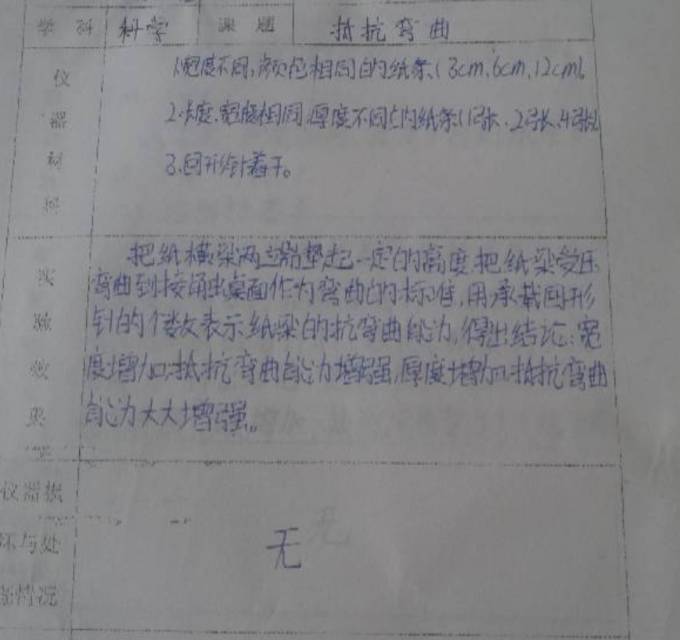 学科 科学 课题 抵抗弯曲
仪器材料
1.宽度不同,颜色相同的纸条(3cm,6cm,12cm).
2.长度.宽度相同,厚度不同的纸条(1张、2张、4张)
3.回形针若干。
实验效果
把纸横梁两边端垫起一定的高度,把纸梁受压
弯曲到接触出桌面作为弯曲的标准,用承载回形
针的个数表示纸梁的抗弯曲能力,得出结论:宽
度增加,抵抗弯曲能力增强,厚度增加,抵抗弯曲
能力大大增强。
仪器损
坏与处
情况
无